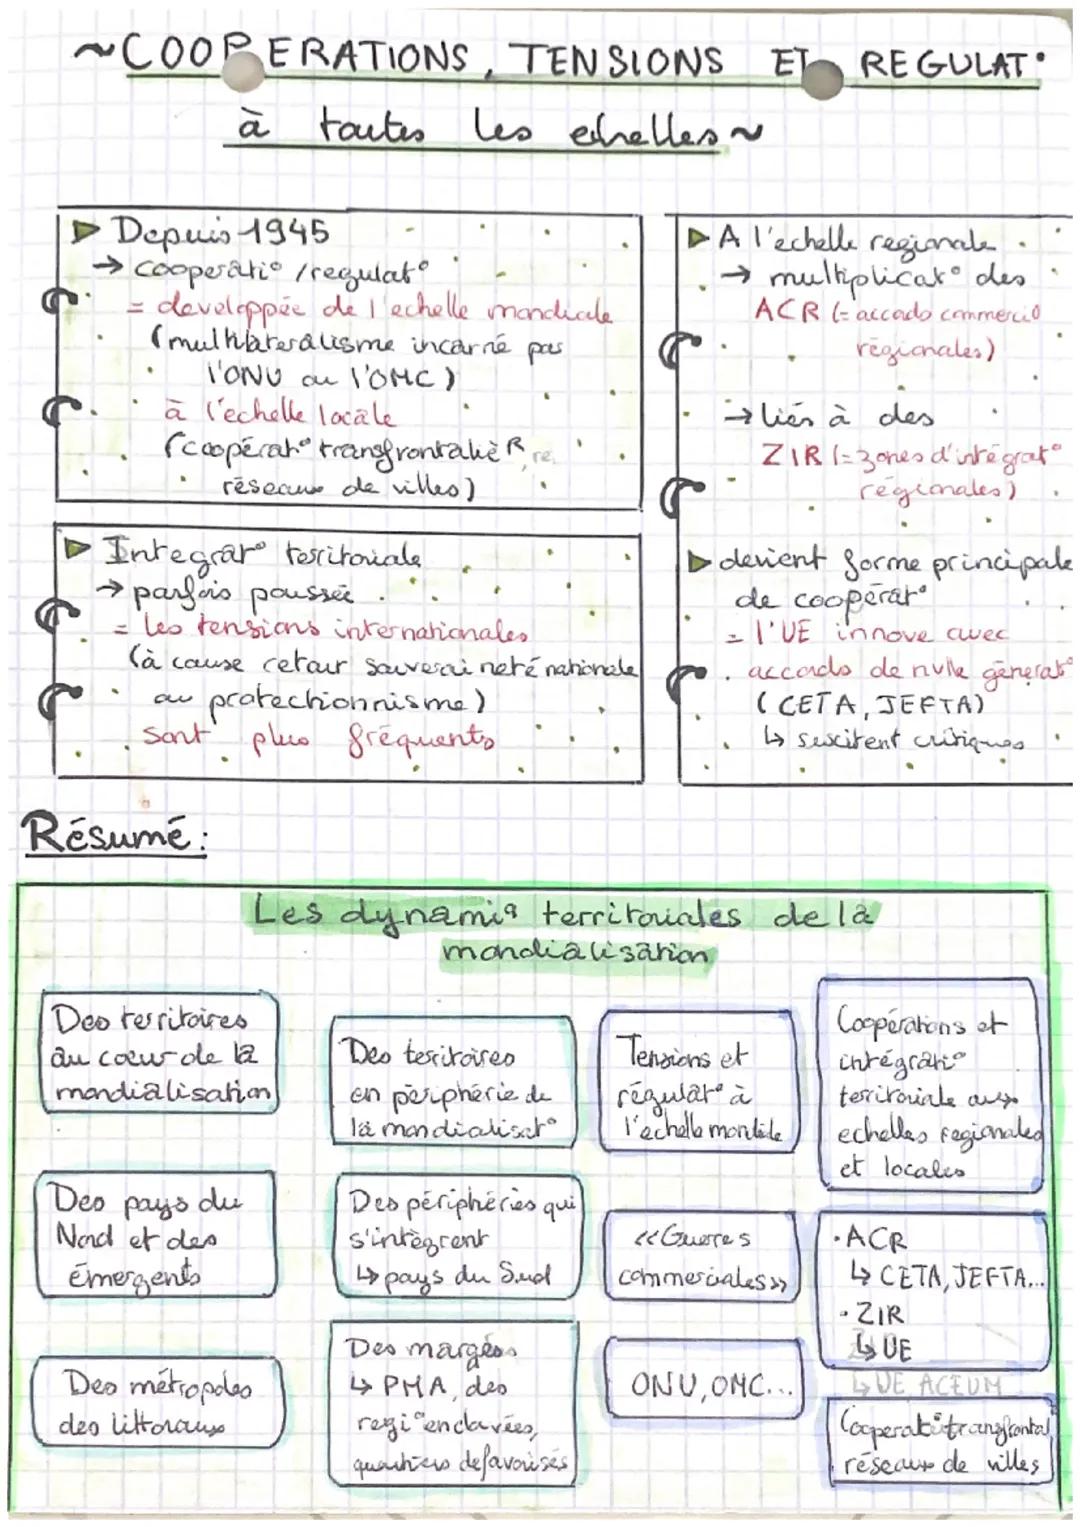 ~COOPERATIONS, TENSIONS ET REGULAT°
à toutes les echelles~
▶ Depuis 1945
→ cooperati° /regulat°
= developpée de l'echelle mondiale
(multilateralisme incarné par
l'ONU ou l'OMC)
à l'échelle locale
(coopérat° transfrontalièR re,
réseaux de villes)
▶ Integrat° territoriale
→ parfois poussée
= les tensions internationales
(à cause retour souveraineté nationale
au protectionnisme)
sont plus fréquents
▶ A l'echelle regionale
→ multiplicat° des
ACR (= accords commerci
régionales)
→ liés à des
ZIR (= zones d'intégrat°
régionales)
▶ devient forme principale
de coopérat°
= l'UE innove avec
accords de nvlle générat°
(CETA, JEFTA)
↳ suscitent critiques
Résumé :
Les dynamiq territoriales de la
mondialisation
Des territoires
au cœur de la
mondialisation
Des pays du
Nord et des
émergents
Des métropoles
des littoraux
Des territoires
en périphérie de
la mondialisat°
Des périphéries qui
s'intègrent
↳ pays du Sud
Des marges
↳ PMA, des
regi° enclavées,
quartiers defavorisés
Tensions et
régulat° à
l'échelle mondiale
«Guerres
commerciales»
ONU, OMC...
Coopérations et
intégrati°
territoriale aux
echelles regionales
et locales
• ACR
↳ CETA, JEFTA...
• ZIR
↳ UE
↳ UE ACEUM
Cooperat° transfrontal
réseaux de villes